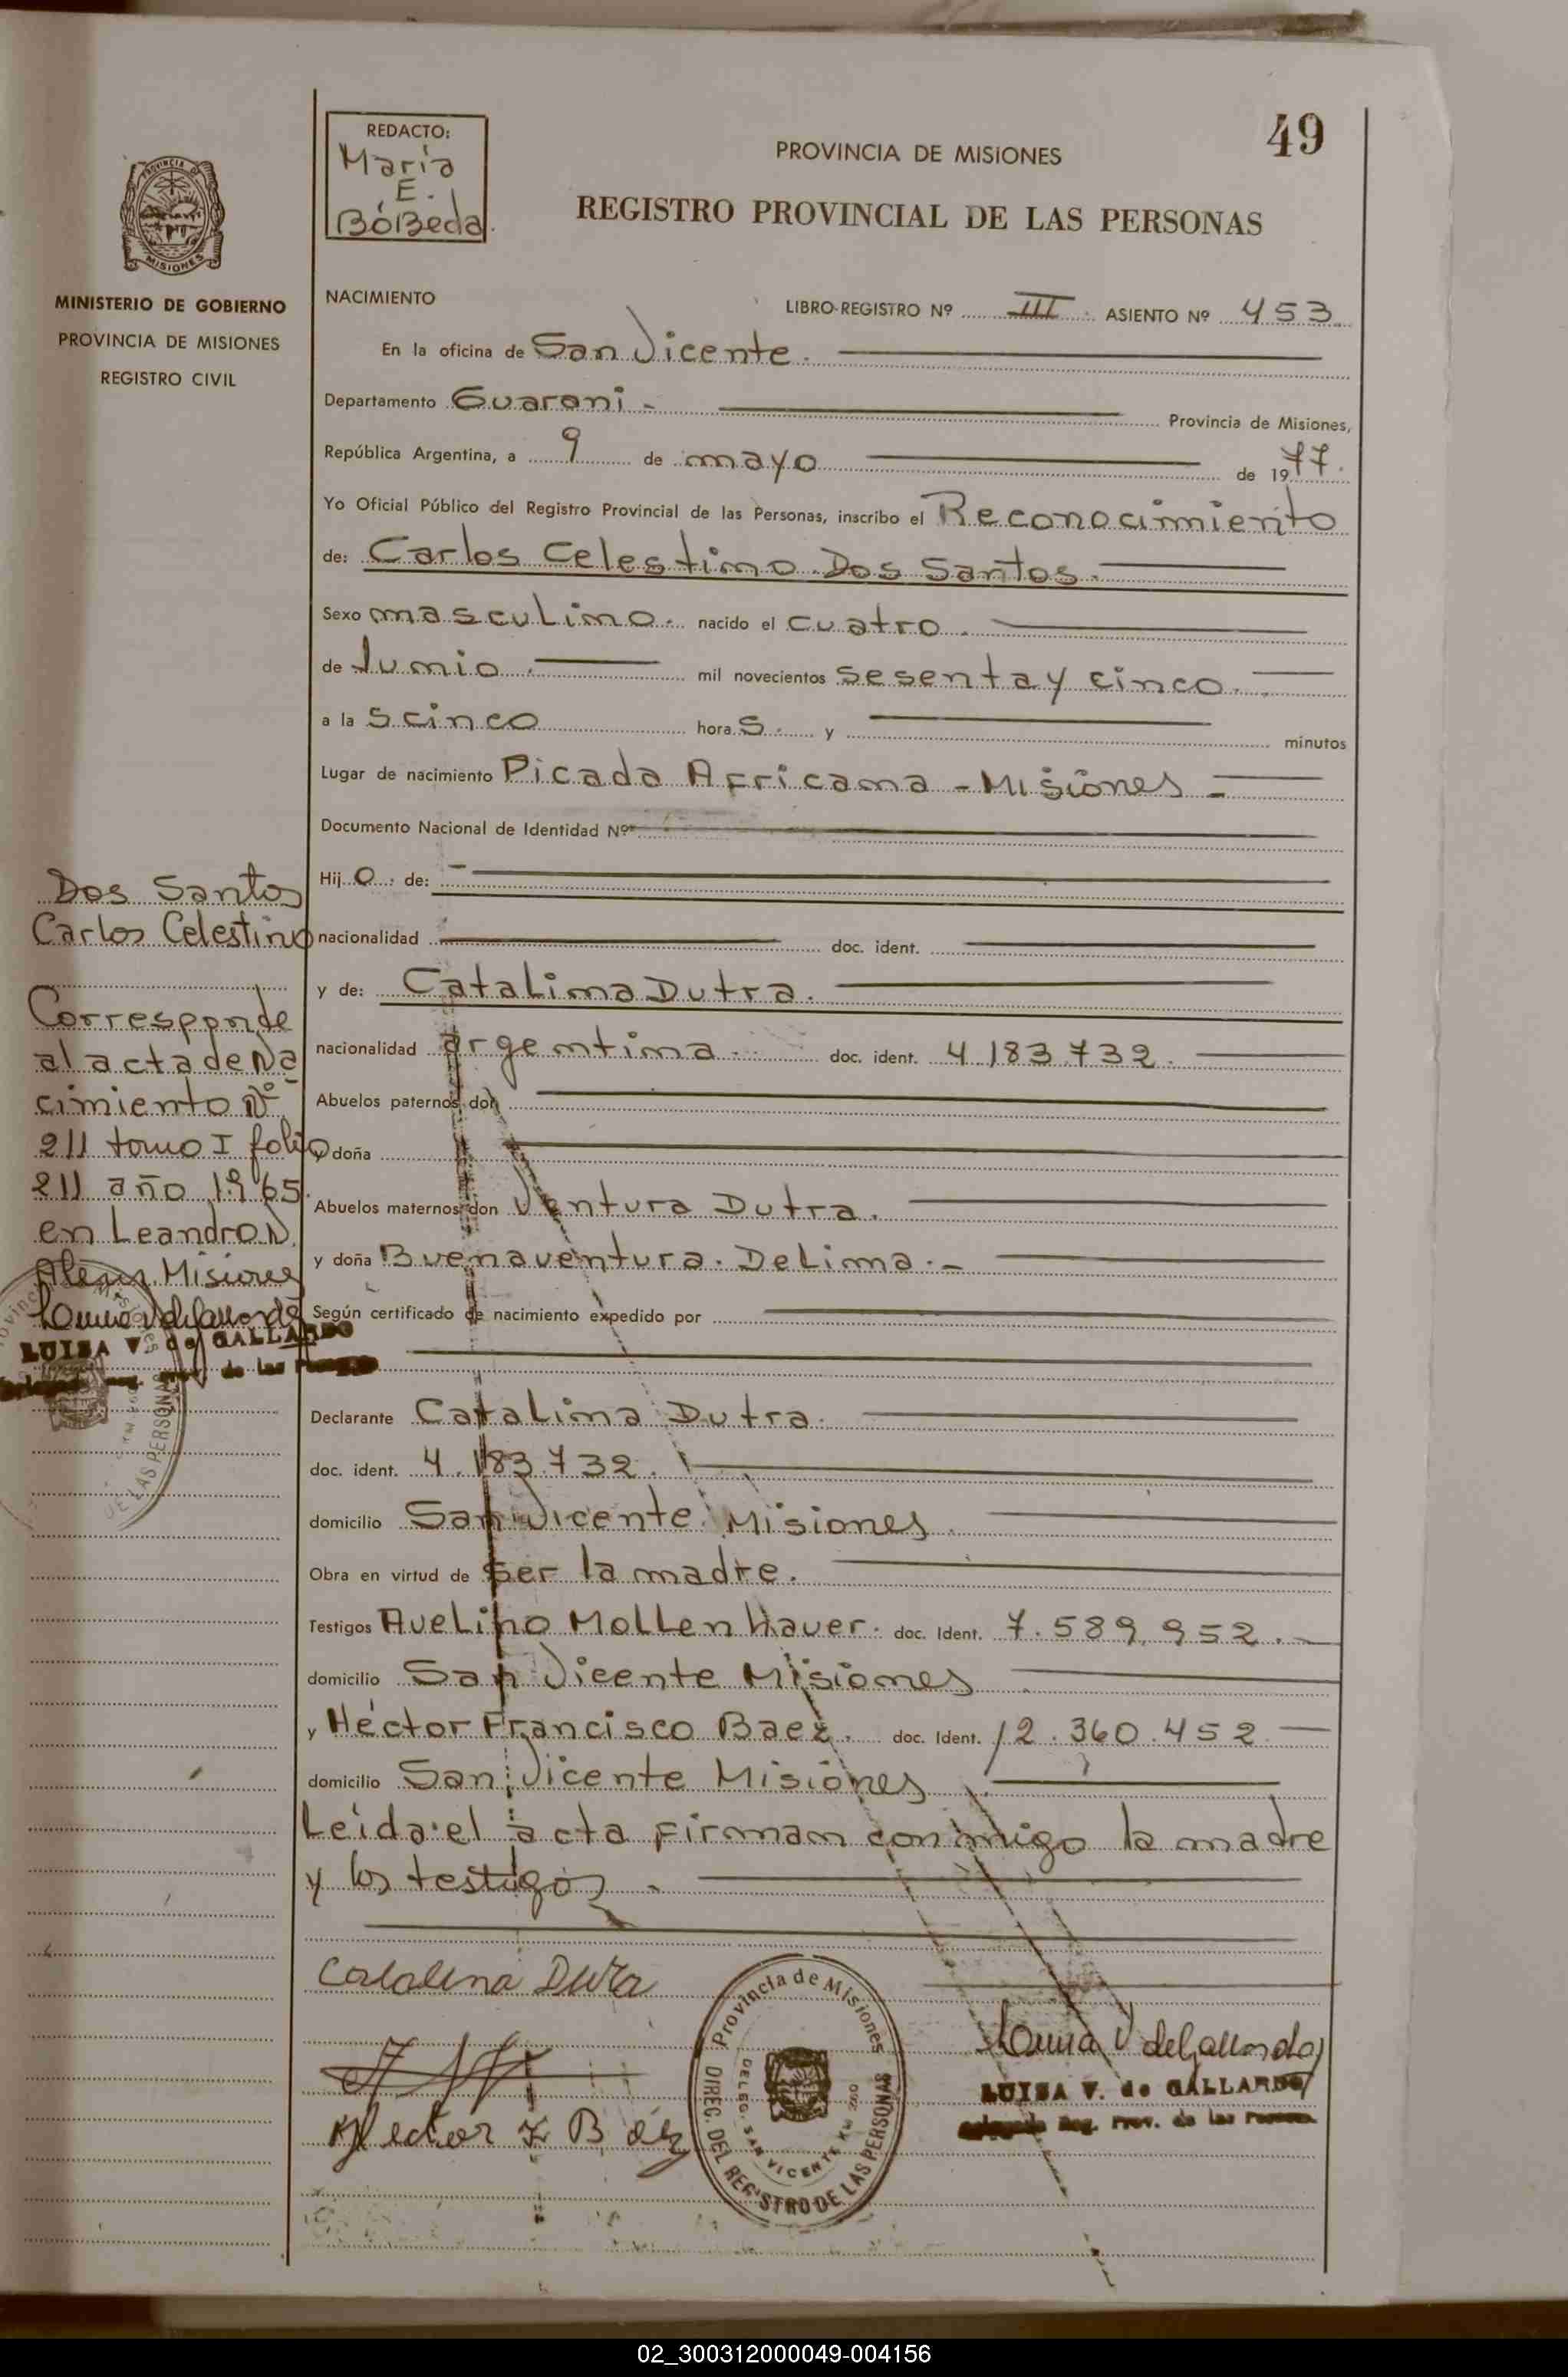 49
REDACTO:
María
E.
BóBeda.
PROVINCIA DE MISIONES
REGISTRO PROVINCIAL DE LAS PERSONAS
PROVINCIA
MISIONES
MINISTERIO DE GOBIERNO
PROVINCIA DE MISIONES
REGISTRO CIVIL
NACIMIENTO LIBRO-REGISTRO Nº III ASIENTO Nº 453
En la oficina de San Vicente.
Departamento Guarani - Provincia de Misiones,
República Argentina, a 9 de mayo de 1977.
Yo Oficial Público del Registro Provincial de las Personas, inscribo el Reconocimiento
de: Carlos Celestino Dos Santos.
Sexo masculino. nacido el cuatro.
de Junio. mil novecientos sesenta y cinco.
a la s cinco hora s. y minutos
Lugar de nacimiento Picada Africana - Misiones -
Documento Nacional de Identidad Nº
Hij o. de: -
nacionalidad doc. ident.
y de: Catalina Dutra.
nacionalidad argentina. doc. ident. 4.183.732.
Abuelos paternos don
y doña
Abuelos maternos don Ventura Dutra.
y doña Buenaventura. DeLima.-
Según certificado de nacimiento expedido por
Declarante Catalina Dutra.
doc. ident. 4.183.732.
domicilio San Vicente. Misiones.
Obra en virtud de ser la madre.
Testigos Avelino Mollenhauer. doc. Ident. 7.589.952.
domicilio San Vicente Misiones
y Héctor Francisco Baez. doc. Ident. 12.360.452
domicilio San Vicente Misiones
Leída el acta firman conmigo la madre
y los testigos.
Dos Santos
Carlos Celestino
Corresponde
al acta de Na
cimiento Nº
211 tomo I folio
211 año 1965.
en Leandro N.
Alem Misiones
LUISA V. de GALLARDO
Catalina Dutra
Hector F Báez
Provincia de Misiones
DIREC. DEL REGISTRO DE LAS PERSONAS
DELEG. SAN VICENTE
LUISA V. de GALLARDO
Delegada Reg. Prov. de las Personas
02_300312000049-004156